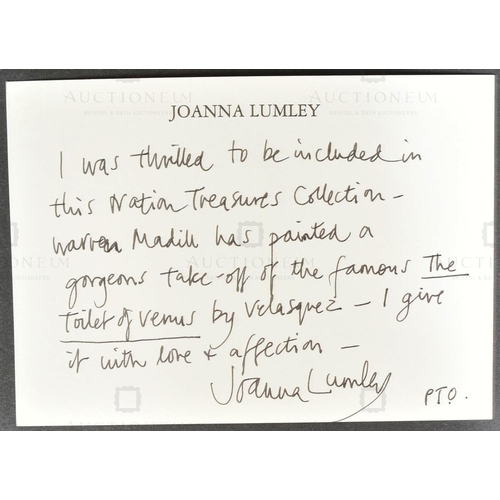 JOANNA LUMLEY
I was thrilled to be included in
this Nation Treasures Collection –
Warren Madill has painted a
gorgeous take-off of the famous The
Toilet of Venus by Velasquez – I give
it with love & affection –
Joanna Lumley
PTO.